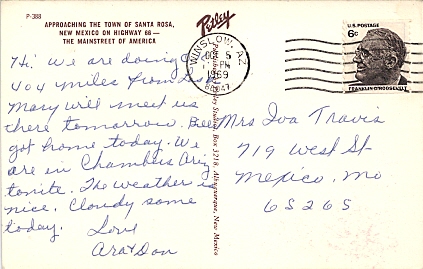 P-388
APPROACHING THE TOWN OF SANTA ROSA,
NEW MEXICO ON HIGHWAY 66 —
THE MAINSTREET OF AMERICA
Petley
WINSLOW, AZ
5
PM
1969
86047
U.S. POSTAGE
6c
FRANKLIN D. ROOSEVELT
Hi! We are doing O.K.
404 miles from
Mary will meet us
there tomorrow. Bill
got home today. We
are in Chambers Ariz
tonite. The weather is
nice. Cloudy some
today. Love
Ara & Don
Petley Studios, Box 3218, Albuquerque, New Mexico
Mrs Iva Travis
719 West St
Mexico, Mo
65265